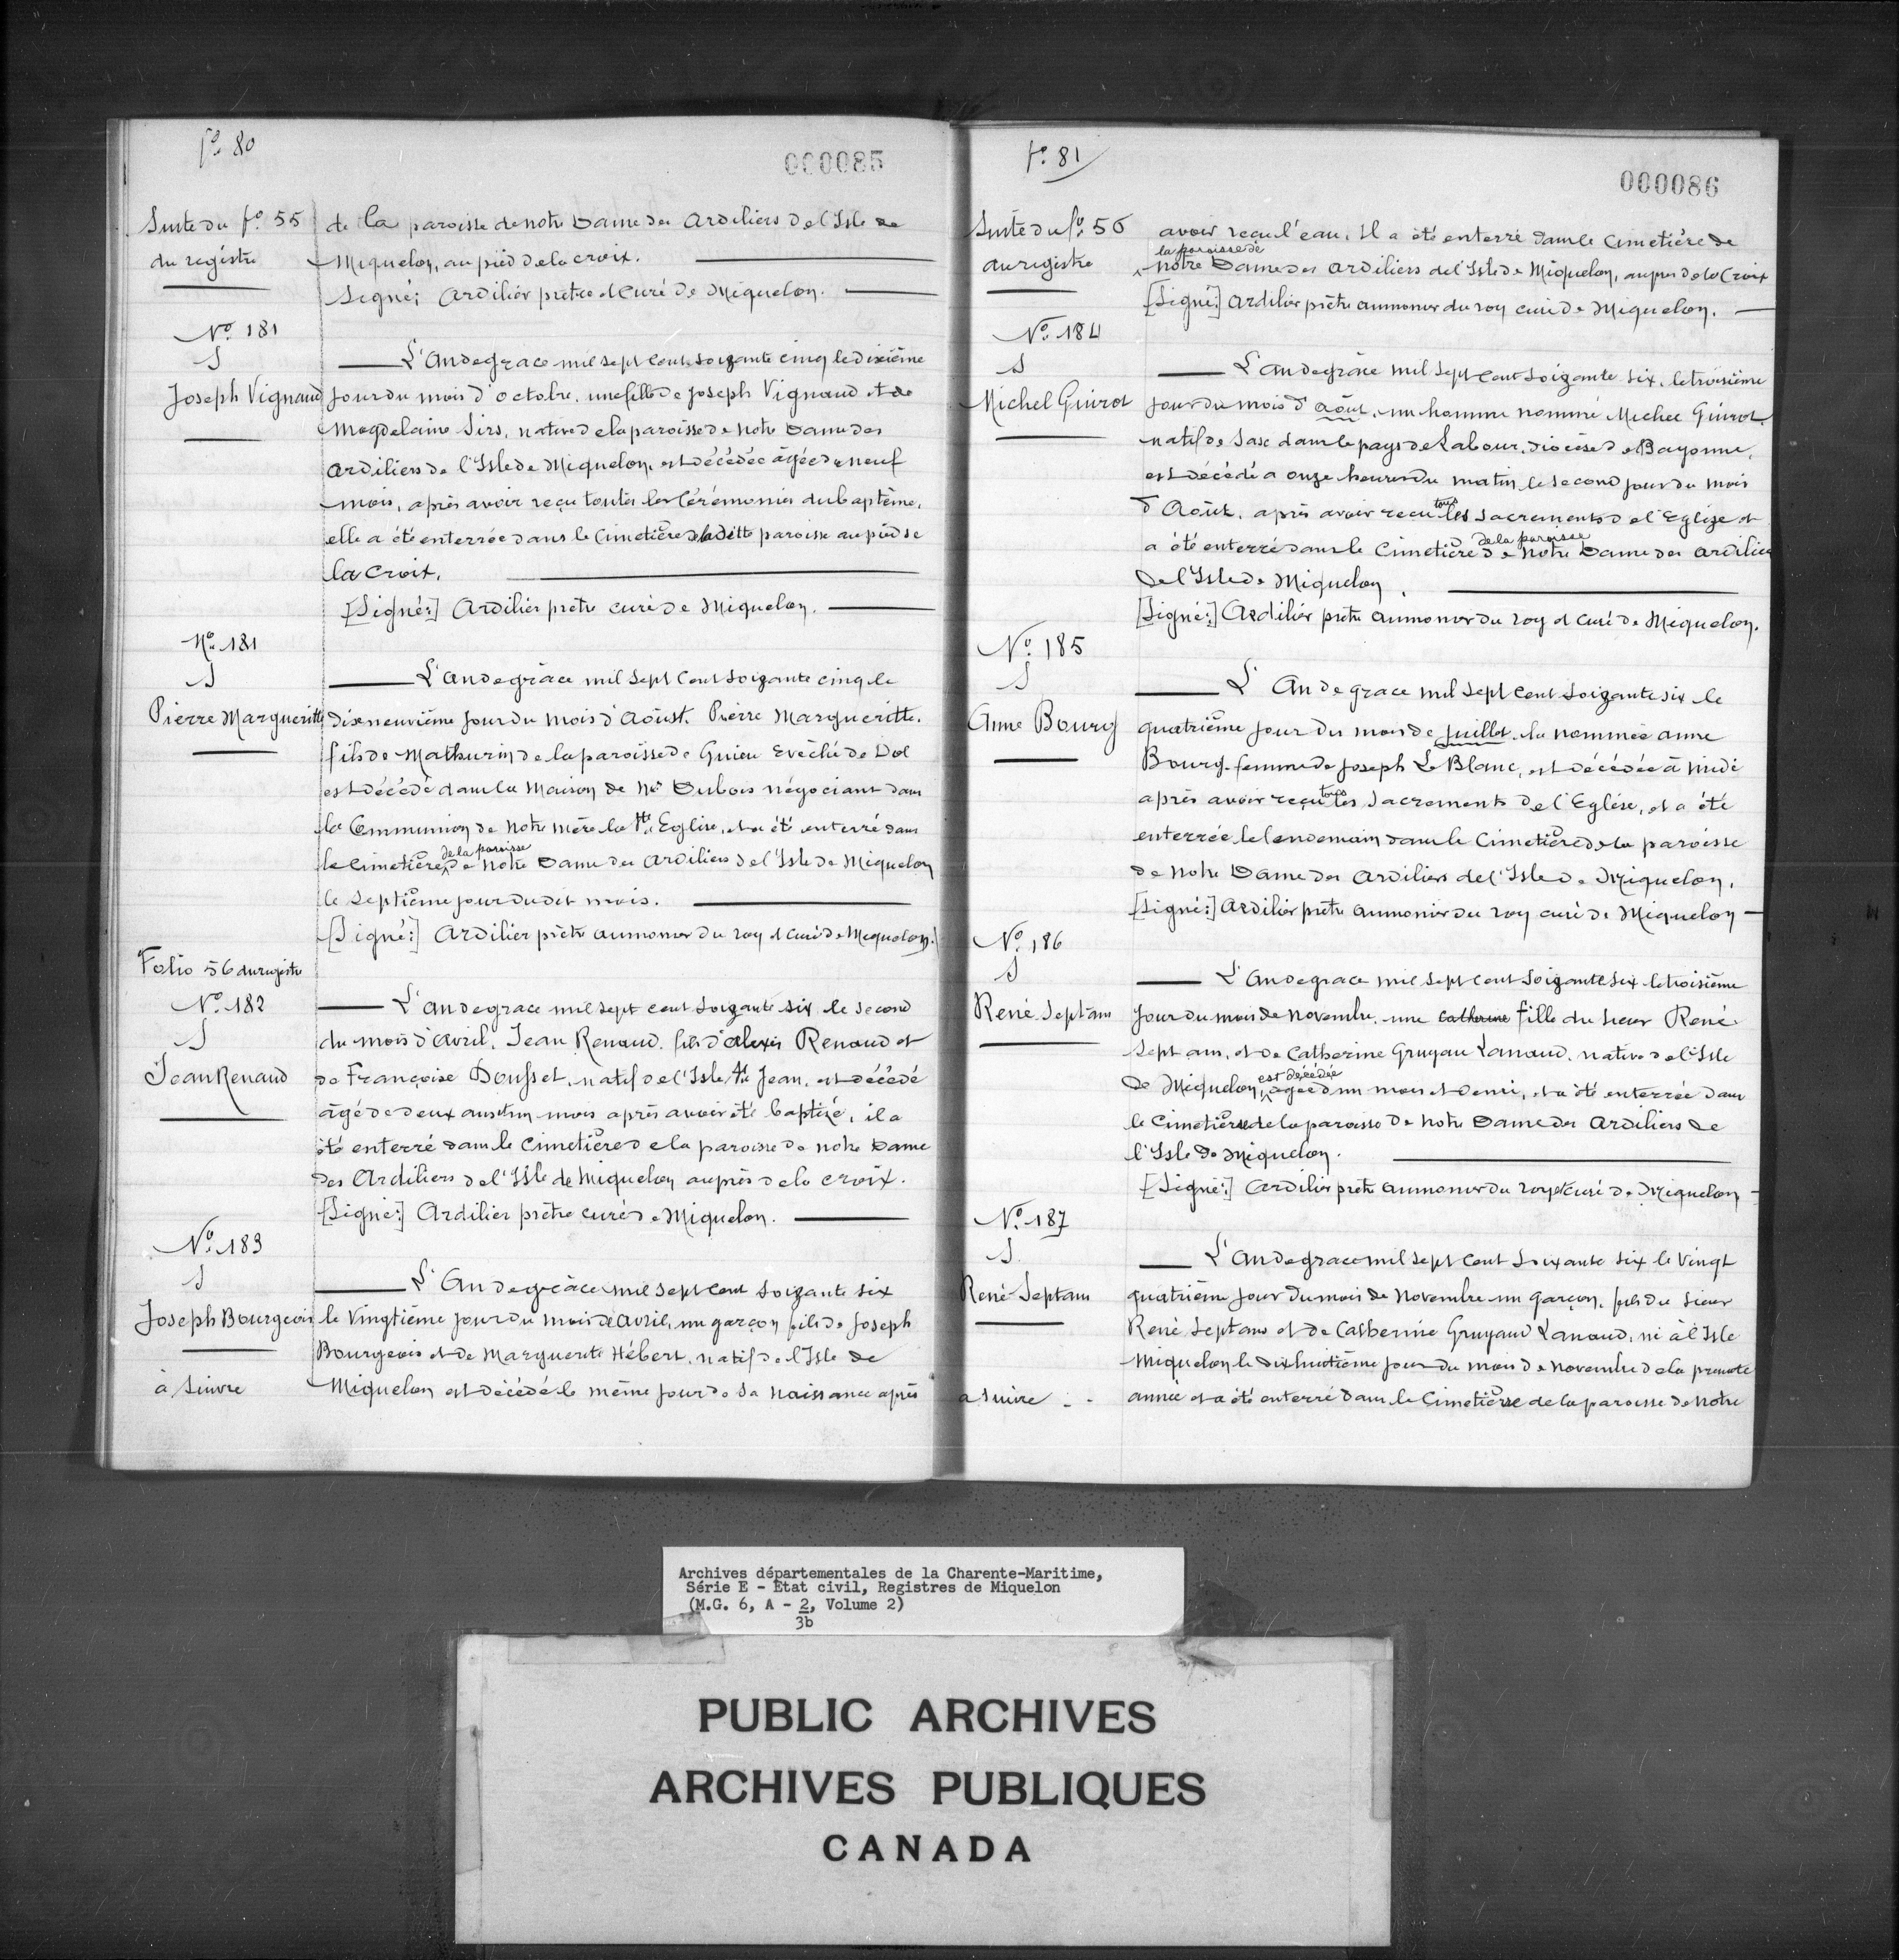 fo. 80
000085
Suite du fo. 55
du régistre
de la paroisse de notre Dame des Ardiliers de l'Isle de
Miquelon, au pied de la croix.
Signé: Ardilier prêtre et Curé de Miquelon.
No. 181
S
Joseph Vignaud
L'An de grace mil sept cent soizante cinq le dixième
jour du mois d'octobre, une fille de Joseph Vignaud et de
Magdelaine Sirs, native de la paroisse de Notre Dame des
Ardiliers de l'Isle de Miquelon, est décédée âgée de neuf
mois, après avoir reçu toutes les Cérémonies du baptême,
elle a été enterrée dans le Cimetière de laditte paroisse au pied de
la Croix.
[Signé:] Ardilier prêtre curé de Miquelon.
No. 181
S
Pierre Margueritte
L'an de grâce mil sept Cent soizante cinq le
dixneuvième jour du mois d'Aoust. Pierre Margueritte.
fils de Mathurin de la paroisse de Guieu Evêché de Dol
est décédé dans la Maison de Mr Dubois négociant dans
la Communion de Notre mère la Ste Eglise, et a été enterré dans
le Cimetière de la paroisse de Notre Dame des Ardiliers de l'Isle de Miquelon
le septième jour dudit mois.
[Signé:] Ardilier prêtre aumonier du roy et curé de Miquelon.
Folio 56 du registre
No. 182
S
Jean Renaud
L'an de grace mil sept cent soizante six le second
du mois d'avril, Jean Renaud. fils d'Alexis Renaud et
de Françoise Dousset, natif de l'Isle St Jean, est décédé
âgé de deux ans et un mois après avoir été baptizé, il a
été enterré dans le Cimetière de la paroisse de notre Dame
des Ardiliers de l'Isle de Miquelon auprès de la croix.
[Signé:] Ardilier prêtre curé de Miquelon.
No. 183
S
Joseph Bourgeois
L'An de grâce mil sept cent soizante six
le vingtième jour du mois de Avril, un garçon fils de Joseph
Bourgeois et de Marguerite Hébert, natif de l'Isle de
Miquelon est décédé le même jour de sa naissance après
à suivre
fo. 81
000086
Suite du fo. 56
du registre
avoir reçu l'eau. Il a été enterré dans le Cimetière de
la paroisse de notre Dame des Ardiliers de l'Isle de Miquelon, auprès de la Croix
[Signé:] Ardilier prêtre aumonier du roy curé de Miquelon.
No. 184
S
Michel Guirot
L'an de grâce mil sept cent soizante six, le troisième
jour du mois d'aôut, un homme nommé Michel Guirot
natif de Sase dans le pays de Labour, diocèse de Bayonne,
est décédé a onze heures du matin le second jour du mois
d'Aôut, après avoir reçu tous les Sacrements de l'Eglize et
a été enterré dans le Cimetière de la paroisse de Notre Dame des Ardiliers
de l'Isle de Miquelon.
[Signé:] Ardilier prêtre aumonier du roy et curé de Miquelon.
No. 185
S
Anne Bourg
L'An de grace mil sept cent soizante six le
quatrième jour du mois de juillet la nommée Anne
Bourg femme de Joseph Le Blanc, est décédée à midi
après avoir reçu tous les Sacrements de l'Eglise, et a été
enterrée le lendemain dans le Cimetière de la paroisse
de Notre Dame des Ardiliers de l'Isle de Miquelon.
[Signé:] Ardilier prêtre aumonier du roy curé de Miquelon
No. 186
S
René Septans
L'an de grace mil sept cent soizante six le troisième
jour du mois de novembre, une Catherine fille du sieur René
Septans, et de Catherine Gruyau Lanaud, native de l'Isle
de Miquelon, est décédée agée d'un mois et demi, et a été enterrée dans
le Cimetière de la paroisse de Notre Dame des Ardiliers de
l'Isle de Miquelon.
[Signé:] Ardilier prêtre aumonier du roy et curé de Miquelon
No. 187
S.
René Septans
L'an de grace mil sept Cent soixante six le vingt
quatrième jour du mois de Novembre un garçon, fils du sieur
René Septans et de Catherine Gruyaud Lanaud, né à l'Isle
Miquelon le dixhuitième jour du mois de novembre de la presente
année et a été enterré dans le Cimetière de la paroisse de Notre
a suivre . .
Archives départementales de la Charente-Maritime,
Série E - Etat civil, Registres de Miquelon
(M.G. 6, A - 2, Volume 2)
3b
PUBLIC ARCHIVES
ARCHIVES PUBLIQUES
CANADA